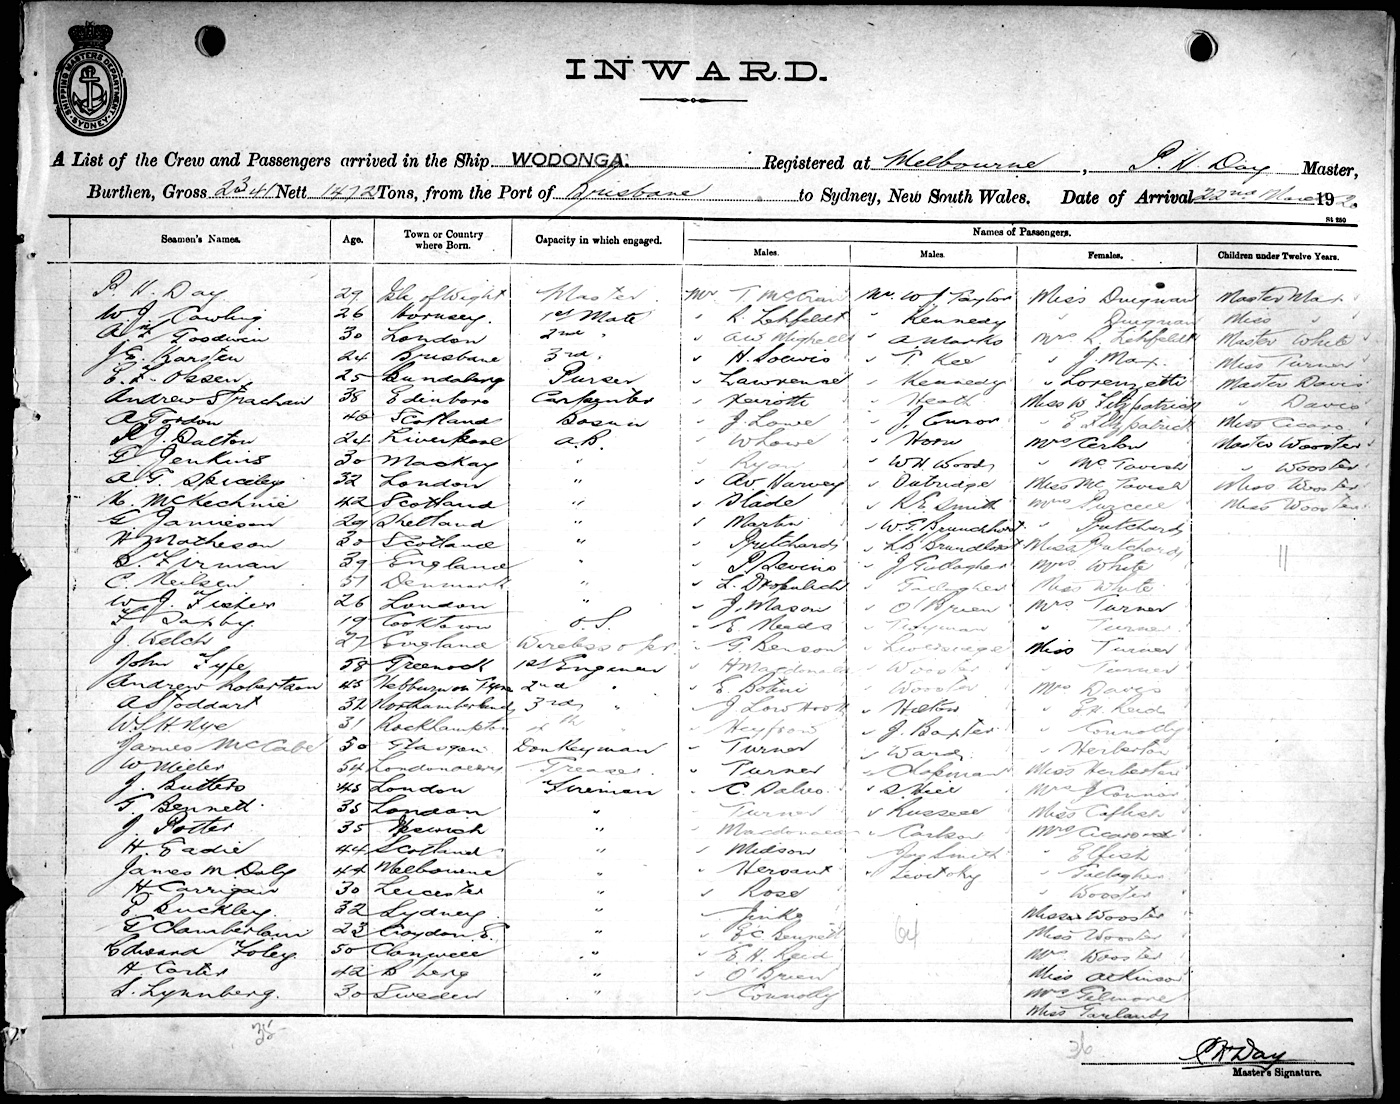 SHIPPING MASTERS DEPARTMENT SYDNEY
INWARD.
A List of the Crew and Passengers arrived in the Ship WODONGA. Registered at Melbourne, P. H. Day Master,
Burthen, Gross 2341 Nett 1472 Tons, from the Port of Brisbane to Sydney, New South Wales. Date of Arrival 22nd March 192
St 250
Seamen's Names. Age. Town or Country where Born. Capacity in which engaged. Names of Passengers.
Males. Males. Females. Children under Twelve Years.
P. H. Day 29 Isle of Wight Master Mr T McGraw Mr W J Taylor Miss Duignan Master Max
W. J. Cowling 26 Hornsey 1st Mate " R. Lehfeldt " Kennedy " Duignan Miss "
Goodwin 30 London 2nd " " A W " A Marks Mrs R. Lehfeldt Master White
J. E. Karsten 24 Brisbane 3rd " " H. " T. Kee " J. Max Miss Turner
E. F. Ossen 25 Bundaberg Purser " Lawrence " Kennedy " Lorenzetti Master Davis
Andrew Strachan 38 Edinboro Carpenter " " Heath Miss W Fitzpatrick " Davis
A Gordon 40 Scotland Bosun " J. Lowe " J. Connor " E Fitzpatrick Miss Cicero
R. J. Dalton 24 Liverpool A.B. " W Lowe " Horn Mrs Master Wooster
G. Jenkins 30 Mackay " " Ryan " W H Woods " McTavish " Wooster
A. G. 32 London " " Harvey " Outridge Miss McTavish Miss Wooster
McKechnie 42 Scotland " " Slade " R. E. Smith Mrs Purcell Miss Wooster
G. Jamieson 29 Shetland " " Martin " W. G. Brundhurst " Pritchards
H Matheson 30 Scotland " " Pritchards " Brundhurst Miss Pritchards 11
Firman 39 England " " P. Levins " J Gallagher Mrs White
C. Neilsen 51 Denmark " " L. " Gallagher Miss White
W. J. Fisher 26 London " " J. Mason " O'Brien Mrs Turner
Saxby 19 Cooktown O.S. " E. Meads " " Turner
J. Welch 27 England Wireless opr " G Benson " Liversedge Miss Turner
John Fyfe 58 Greenock 1st Engineer " H Macdonald " Wooster " Turner
Andrew Robertson 45 Hebburn on Tyne 2nd " " E. Botini " Wooster Mrs Davis
A Stoddart 32 Northumberland 3rd " " J Low Hook " Hilton " E H Reid
W. S. H. Nye 31 Rockhampton 4th " " " J. Baxter " Connolly
James McCabe 50 Glasgow Donkeyman " Turner " Ward " Herberton
W Miller 54 Greaser " Turner " Chapman Miss Herberton
J. Butters 45 London Fireman " C " Mrs J Connor
G Bennett 35 London " " Turner " Russell Miss
J. Potter 35 Ipswich " " Macdonald " Carlson Mrs
H. Eadie 44 Scotland " " Midson " Jay Smith "
James M Daly 44 Melbourne " " Hersant " Levitsky " Gallagher
H Carrigan 30 Leicester " " Rose " Wooster
P. Buckley 32 Sydney " " Jinks Misses Wooster
G Chamberlain 23 Croydon E. " " E C Bennett 64 Miss Wooster
Edward Foley 50 Clonmell " " E. H. Reid Mrs Wooster
H Carter 42 B berg " " O'Brien Miss Atkinson
S. Lynnberg 30 Sweden " " Connolly Mrs Gilmore
Miss Garlands
35 36
P H Day
Master's Signature.